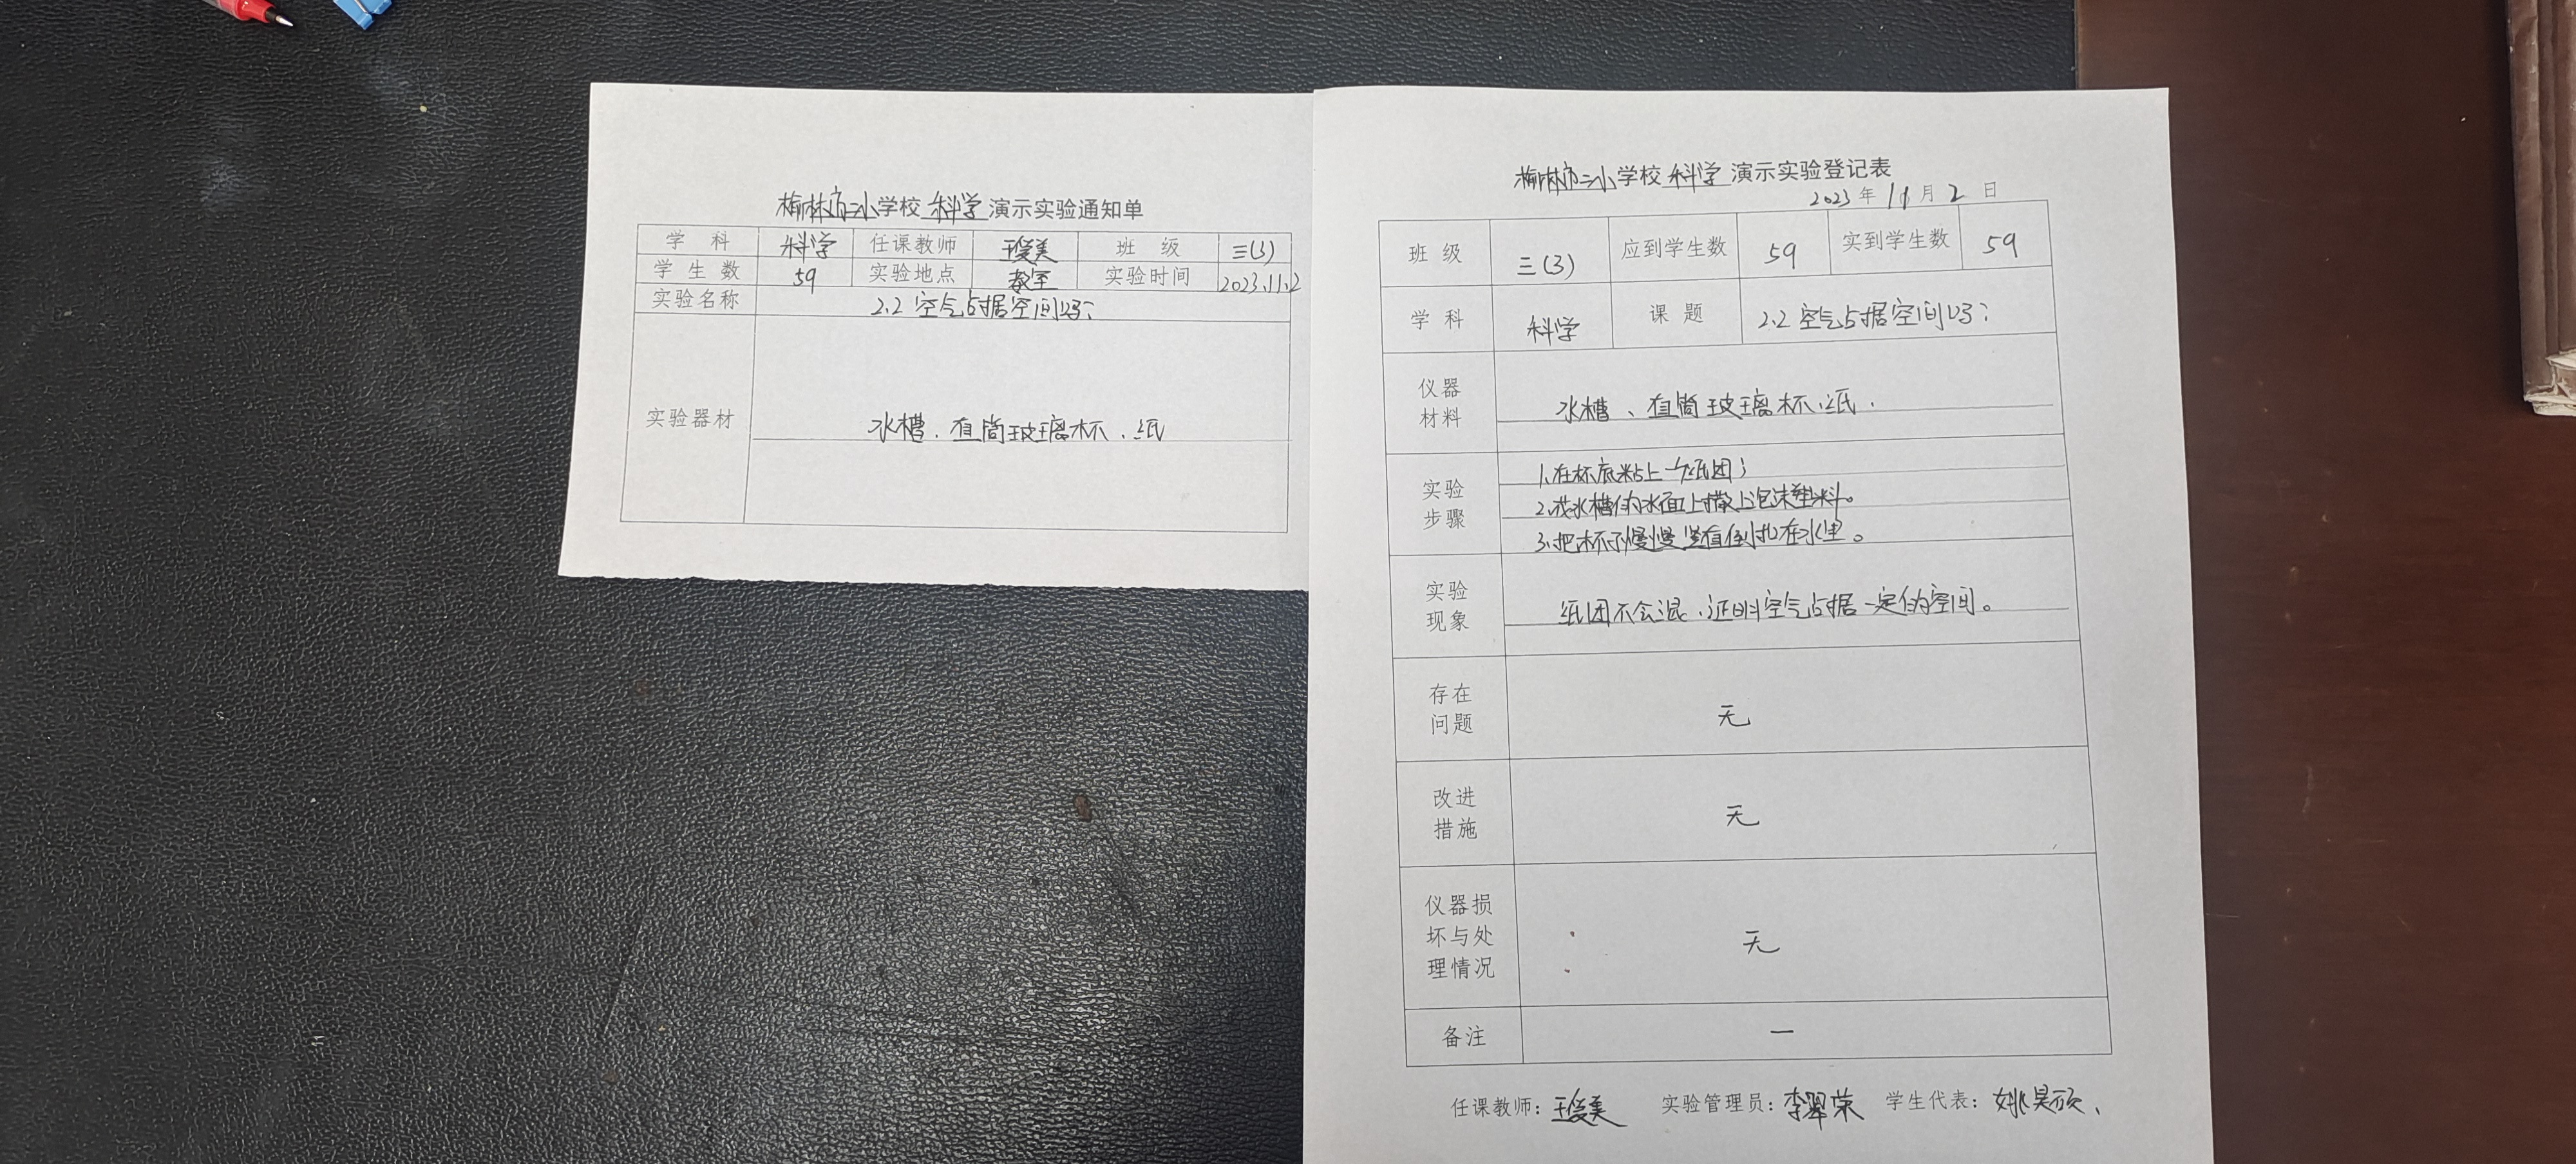 榆林市二小学校 科学 演示实验通知单
学 科 科学 任课教师 王俊美 班 级 三(3)
学 生 数 59 实验地点 教室 实验时间 2023.11.2
实验名称 2.2 空气占据空间吗?
实验器材 水槽、直筒玻璃杯、纸
榆林市二小学校 科学 演示实验登记表
2023 年 11 月 2 日
班 级 三(3) 应到学生数 59 实到学生数 59
学 科 科学 课 题 2.2 空气占据空间吗?
仪器材料 水槽、直筒玻璃杯、纸.
实验步骤 1.在杯底粘上一个纸团;
2.在水槽的水面上撒上泡沫塑料。
3.把杯子慢慢竖直倒扣在水里。
实验现象 纸团不会湿.证明空气占据一定的空间。
存在问题 无
改进措施 无
仪器损坏与处理情况 无
备注 一
任课教师: 王俊美 实验管理员: 李翠荣 学生代表: 姚昊